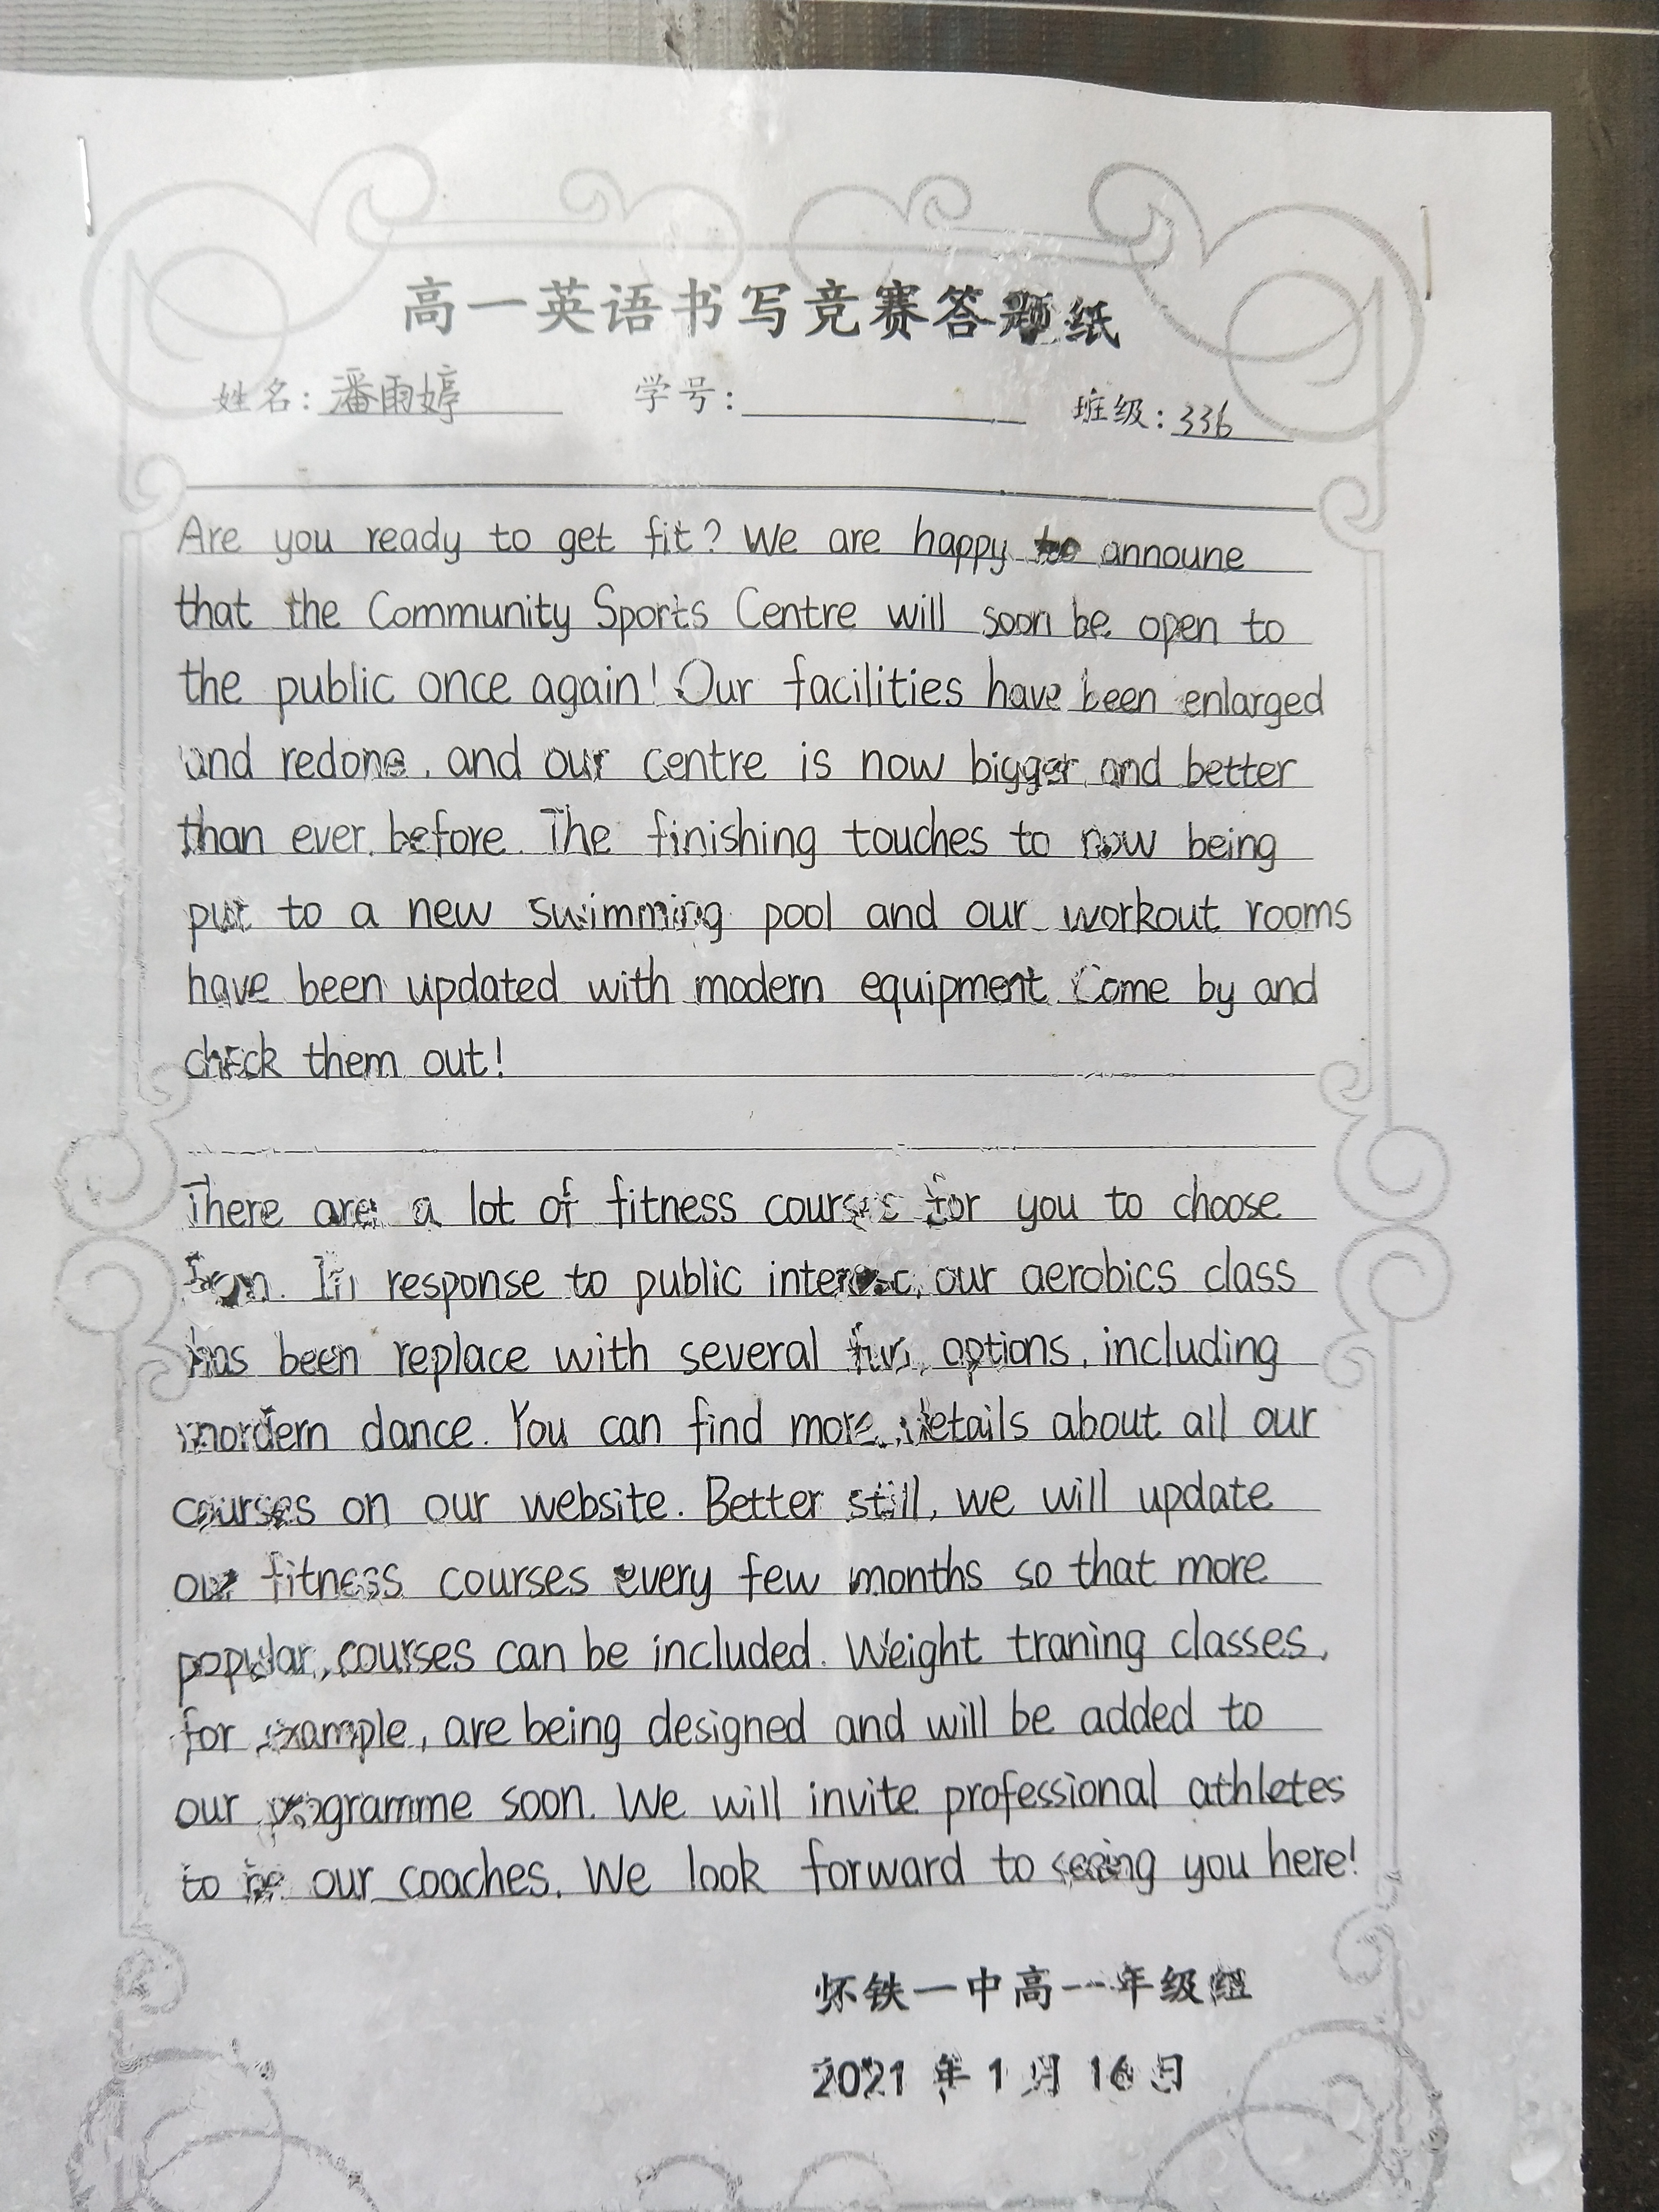 高一英语书写竞赛答题纸
姓名：潘雨婷 学号： 班级：336
Are you ready to get fit? We are happy to announe
that the Community Sports Centre will soon be open to
the public once again! Our facilities have been enlarged
and redone, and our centre is now bigger and better
than ever before. The finishing touches to now being
put to a new swimming pool and our workout rooms
have been updated with modern equipment. Come by and
check them out!
There are a lot of fitness courses for you to choose
from. In response to public interest, our aerobics class
has been replace with several fun options, including
mordern dance. You can find more details about all our
courses on our website. Better still, we will update
our fitness courses every few months so that more
popular courses can be included. Weight traning classes,
for example, are being designed and will be added to
our programme soon. We will invite professional athletes
to be our coaches. We look forward to seeing you here!
怀铁一中高一年级组
2021年1月16日